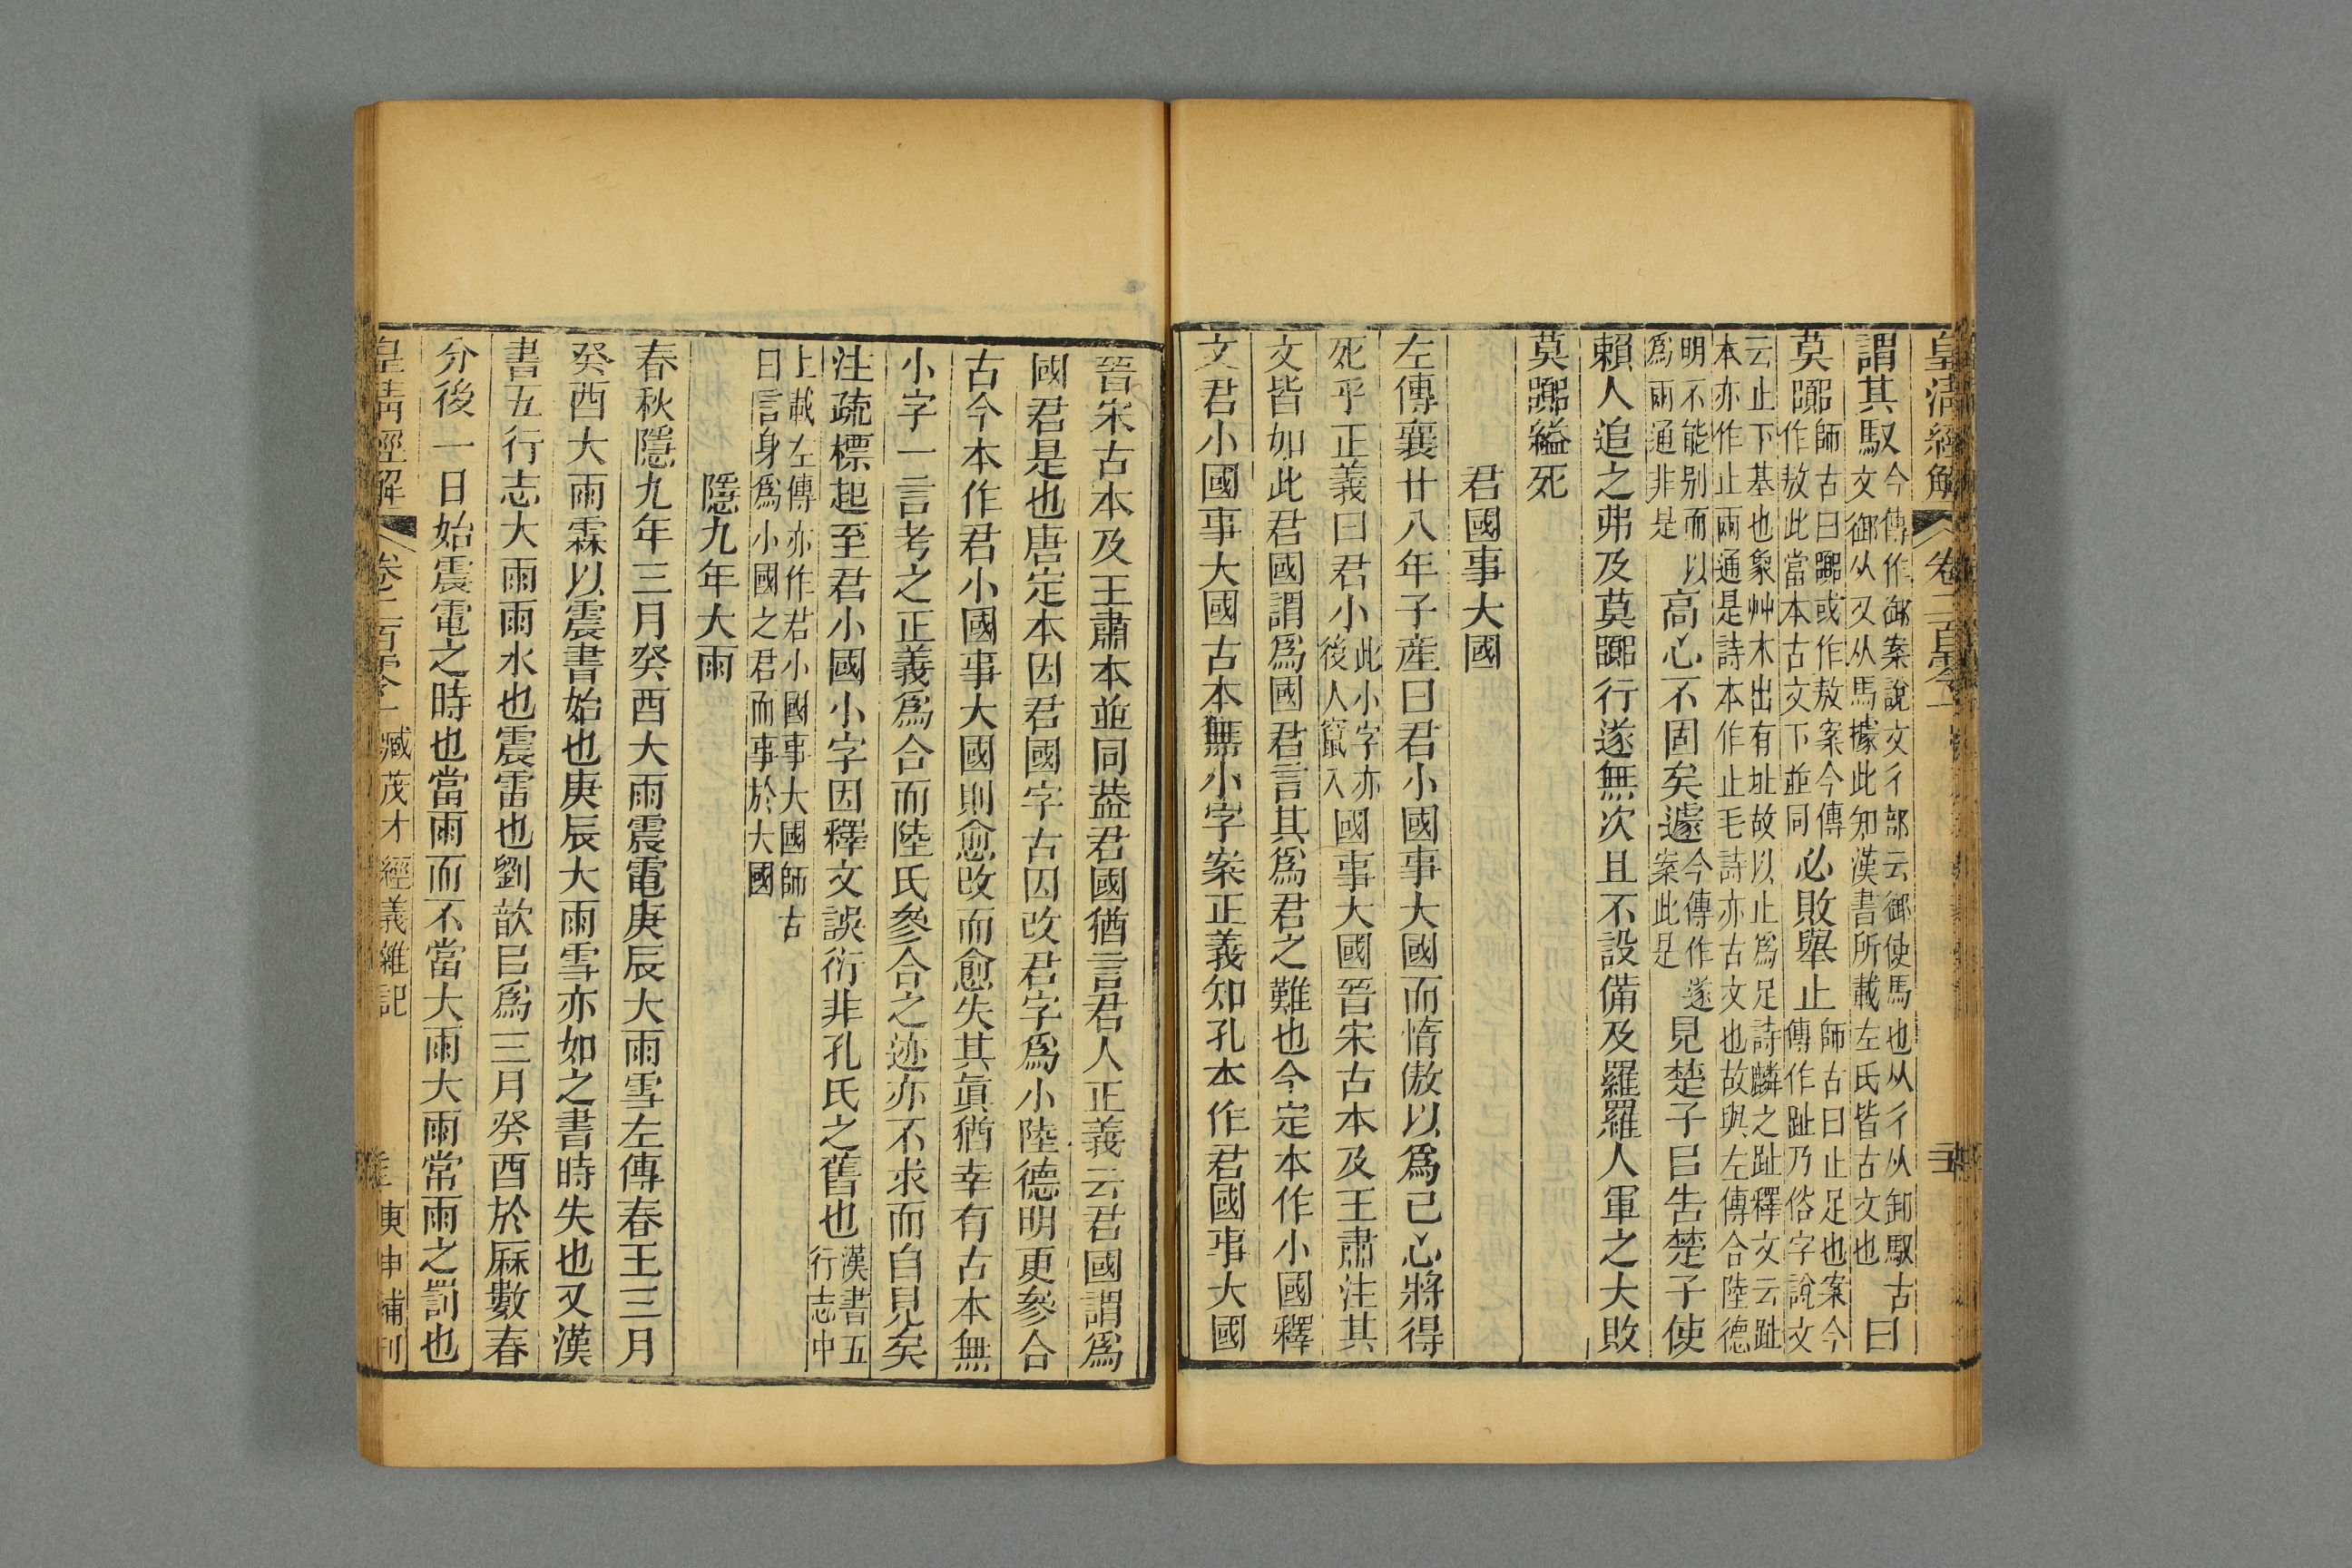 皇清經解 卷二百零一
謂其馭今傳作御案說文彳部云御使馬也从彳从卸馭古
文御从又从馬據此知漢書所載左氏皆古文也曰
莫嚻師古曰嚻或作敖案今傳
作敖此當本古文下並同必敗舉止師古曰止足也案今
傳作趾乃俗字說文
云止下基也象艸木出有址故以止爲足詩麟之趾釋文云趾
本亦作止兩通是詩本作止毛詩亦古文也故與左傳合陸德
明不能别而以
爲兩通非是高心不固矣遽今傳作遂
案此是見楚子㠯告楚子使
賴人追之弗及莫嚻行遂無次且不設備及羅羅人軍之大敗
莫嚻縊死
君國事大國
左傳襄廿八年子產曰君小國事大國而惰傲以爲己心將得
死乎正義曰君小此小字亦
後人竄入國事大國晉宋古本及王肅注其
文皆如此君國謂爲國君言其爲君之難也今定本作小國釋
文君小國事大國古本無小字案正義知孔本作君國事大國
晉宋古本及王肅本並同葢君國猶言君人正義云君國謂爲
國君是也唐定本因君國字古囚改君字爲小陸德明更參合
古今本作君小國事大國則愈改而愈失其眞猶幸有古本無
小字一言考之正義爲合而陸氏參合之迹亦不求而自見矣
注疏標起至君小國小字因釋文誤衍非孔氏之舊也漢書五
行志中
上載左傳亦作君小國事大國師古
曰言身爲小國之君而事於大國
隱九年大雨
春秋隱九年三月癸酉大雨震電庚辰大雨雪左傳春王三月
癸酉大雨霖以震書始也庚辰大雨雪亦如之書時失也又漢
書五行志大雨雨水也震雷也劉歆㠯爲三月癸酉於厤數春
分後一日始震電之時也當雨而不當大雨大雨常雨之罰也
皇清經解 卷二百零一 臧茂才經義雜記 庚申補刊